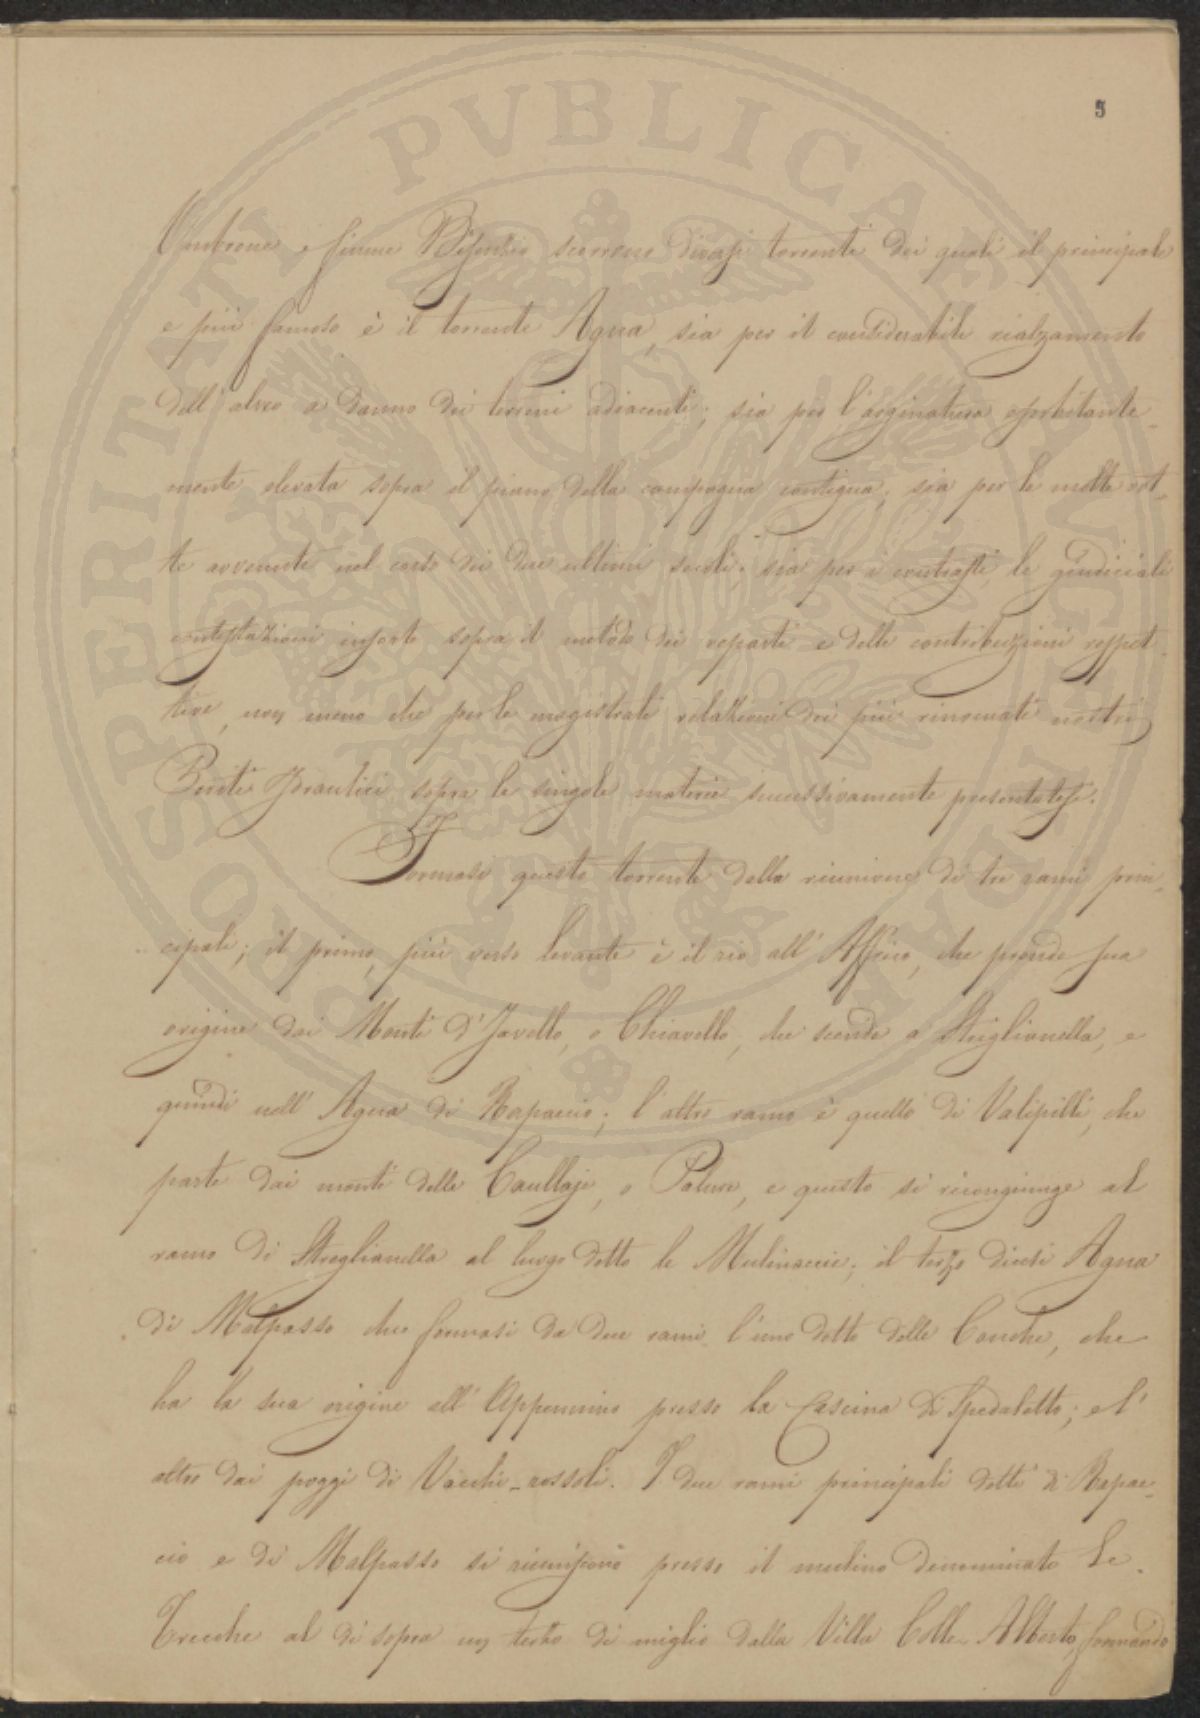 5
Ombrone e fiume Bisenzio scorrono diversi torrenti dei quali il principale
e più famoso è il torrente Agna, sia per il considerabile rialzamento
dell'alveo a danno dei terreni adiacenti; sia per l'arginatura esorbitante-
mente elevata sopra il piano della campagna contigua; sia per le molte rot-
te avvenute nel corso dei due ultimi secoli; sia per i contrasti, le giudiciali
contestazioni insorte sopra il metodo dei reparti e delle contribuzioni respet-
tive, non meno che per le magistrali relazioni dei più rinomati nostri
Periti Idraulici sopra le singole materie successivamente presentatesi.
Formasi questo torrente dalla riunione di tre rami prin-
cipali; il primo, più verso levante è il rio all'Affrico, che prende sua
origine dai Monti d'Javello, o Chiavello, che scende a Striglianella, e
quindi nell'Agna di Rapaccio; l'altro ramo è quello di Valipilli, che
parte dai monti delle Caullaje, o , e questo si ricongiunge al
ramo di Striglianella al luogo detto le Mulinaccie; il terzo dicesi Agna
di Malpasso che formasi da due rami l'uno detto delle Conche, che
ha la sua origine all'Appennino presso la Cascina di Spedaletto; e l'
altro dai poggi di Vacchi-rossoli. I due rami principali detti di Rapac-
cio e di Malpasso si riuniscono presso il mulino denominato Le
Trecche al di sopra un terzo di miglio dalla Villa Colle-Alberto, formando
PROSPERITATI PVBLICAE AVGENDAE